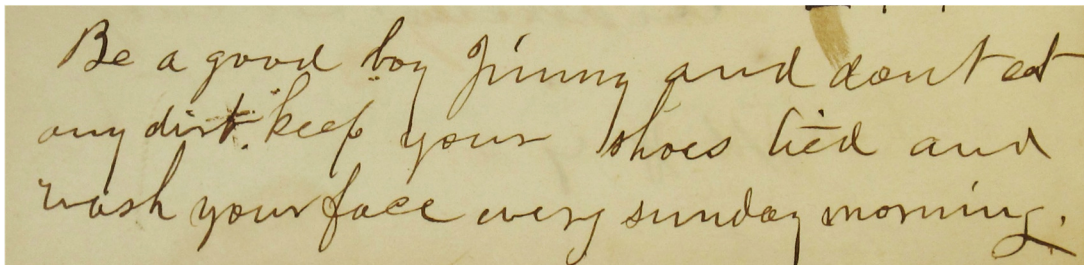 Be a good boy Jimmy and dont eat
any dirt. keep your shoes tied and
wash your face every sunday morning.